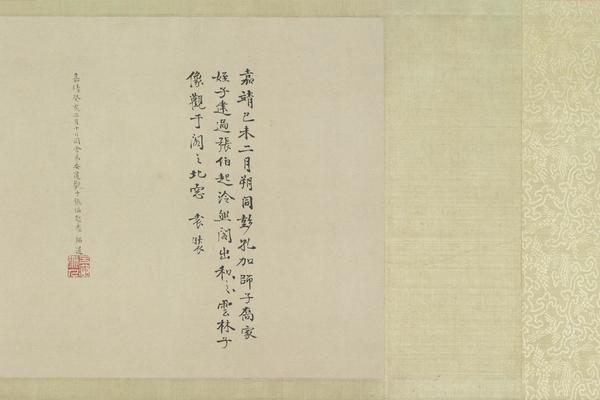 嘉靖己未二月朔同彭孔加師子喬家
姪子遠過張伯起泠然閣出雲林子
像觀于閣之北窓 袁褧
嘉靖癸亥二月十日同觀于張伯起齋